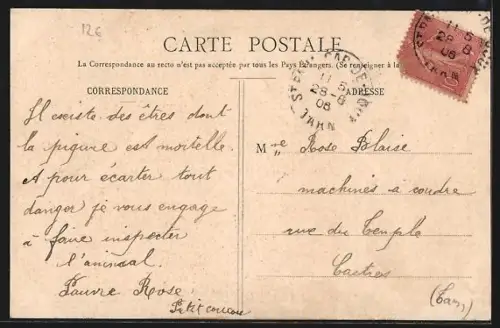 126
CARTE POSTALE
La Correspondance au recto n'est pas acceptée par tous les Pays Étrangers. (Se renseigner à la
CORRESPONDANCE
ADRESSE
Il existe des êtres dont
la piqure est mortelle.
A pour écarter tout
danger je vous engage
à faire inspecter
l'animal.
Pauvre Rose
Petit coucou
Mlle Rose Blaise
machines à coudre
rue du Temple
Castres
(Tarn)
11 5
28-8
08
TARN
11 5
28-8
08
TARN